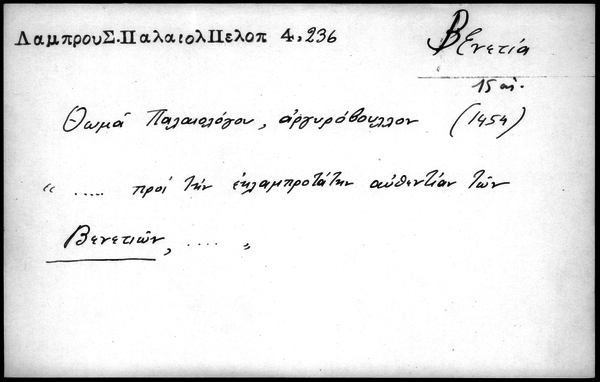 ΛαμπρουΣ.ΠαλαιολΠελοπ 4,236
Βενετία
15 αι.
Θωμᾶ Παλαιολόγου, ἀργυρόβουλλον (1454)
“ ..... πρὸς τὴν ἐκλαμπροτάτην αὐθεντίαν τῶν
Βενετιῶν, ..... „